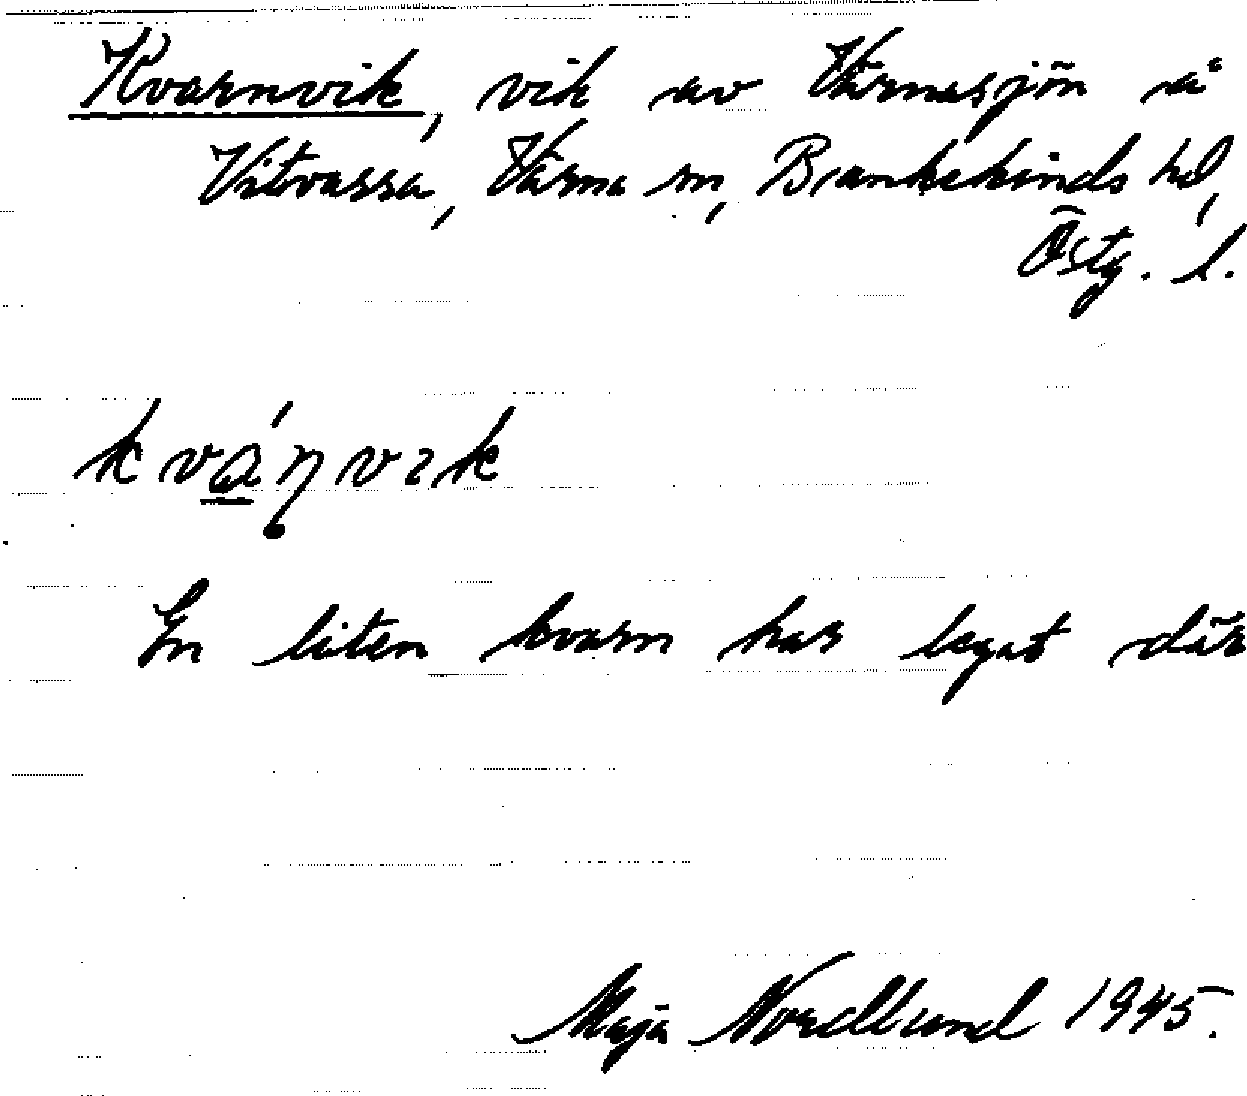 Kvarnvik, vik av Värnasjön å
Vitvassa, Värna sn, Bankekinds hd,
Östg. l.
kvánvik
En liten kvarn har legat där
Maja Nordlund 1945.